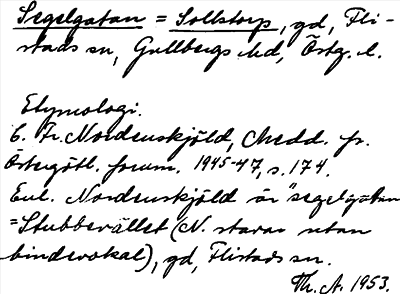 Segelgatan = Sollstorp, gd, Fli-
stads sn, Gullbergs hd, Östg. l.
Etymologi.
C. Fr. Nordenskjöld, Medd. fr.
Östergötl. forum. 1945-47, s. 174.
Enl. Nordenskjöld är "segelgatan
=Stubbevållet (N. stavar utan
bindevokal), gd, Flistads sn.
Th. A. 1953.